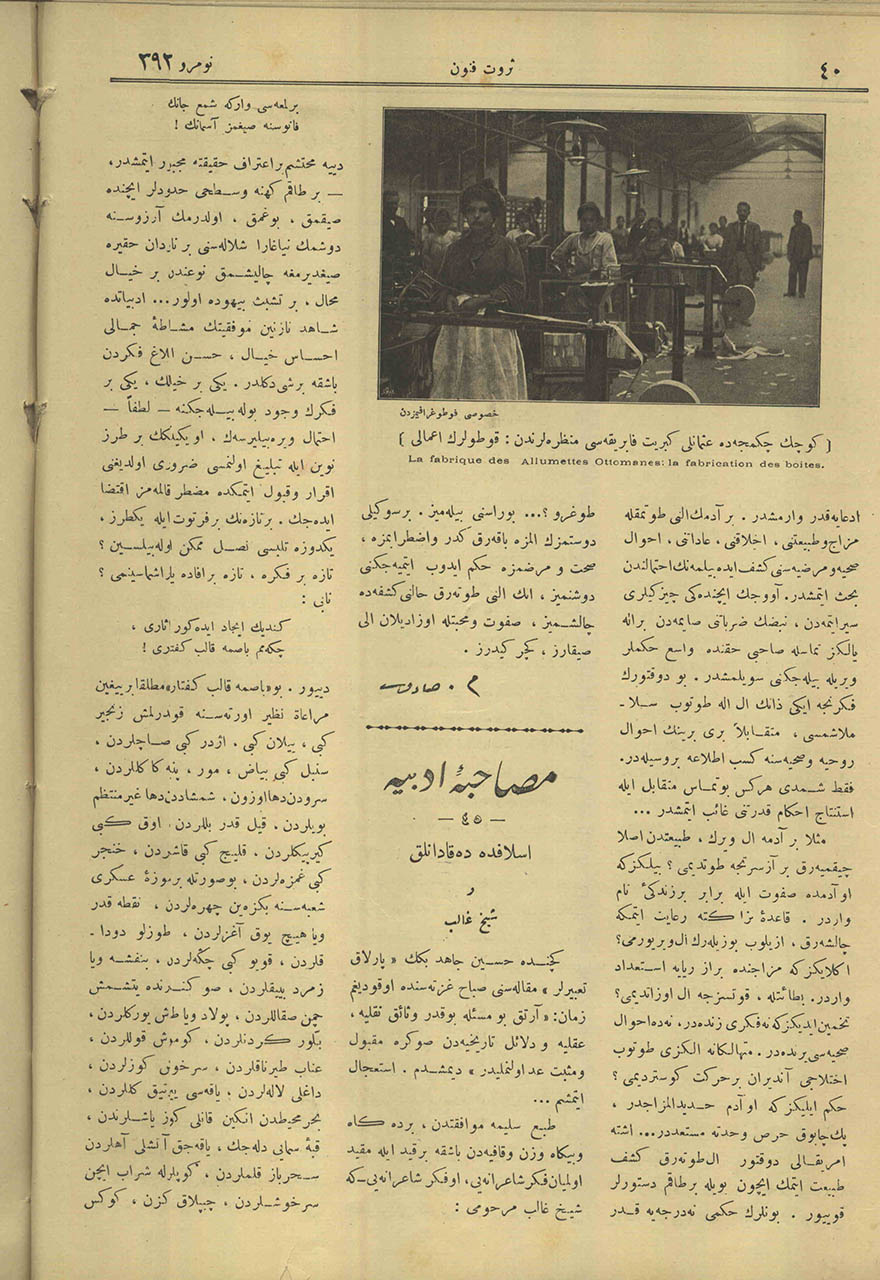 ٤٠
ثروت فنون
نومرو ٣٩٢
خصوصی فوطوغرافیزدن
( کوچك چکمجه‌ده عثمانلی کبریت فابریقه‌سی منظره‌لرندن : قوطولرك اعمالی )
La fabrique des Allumettes Ottomanes: la fabrication des boites.
ادعایه‌قدر وارمشدر . بر آدمك‌النی طوتمقله
مزاج‌وطبیعتنی ، اخلاقنی ، عاداتنی ، احوال
صحیه‌ومرضیه‌سنی کشف ایده‌بیلمه‌نك احتمالندن
بحث ایتمشدر. آووجك ایچنده‌کی چیزکیلری
سیرایتمه‌دن ، نبضك ضرباتنی صایمه‌دن برانه
یالکز تماسله صاحبی حقنده واسع حکملر
ویریله بیله‌جکنی سویلمشدر . بو دوقتورك
فکرنجه ایکی ذاتك ال اله طوتوب سلا-
ملاشمسی ، متقابلاً بری برینك احوال
روحیه وصحیه‌سنه کسب اطلاعه بروسیله‌در.
فقط شمدی هرکس بوتماس متقابل ایله
استنتاج احکام قدرتنی غائب ایتمشدر ...
مثلا بر آدمه ال ویرك ، طبیعتدن اصلا
چیقمیه‌رق بر آز سرتجه طوتدیمی ؟ بیلکزکه
اوآدمده صفوت ایله برابر برزنده‌کئ تام
واردر . قاعدۀ نزاکته رعایت ایتمکه
چالشه‌رق ، ازیلوب بوزیله‌رك ال‌ویریورمی؟
اکلایکزکه مزاجنده براز ریایه استعداد
واردر. بطائتله ، قوتسزجه ال اوزاتدیمی؟
تخمین‌ایدیکزکه نه‌فکری زنده‌در، نه‌ده احوال
صحیه‌سی برنده‌در . متهالکانه الکزی طوتوب
اختلاجی آندیران برحرکت کوستردیمی ؟
حکم ایلیکزکه اوآدم حدیدالمزاجدر ،
پك‌چابوق حرص وحدته مستعددر... اشته
امریقالی دوقتور ال‌طوته‌رق کشف
طبیعت ایتمك ایچون بویله برطاقم دستورلر
قوییور . بونلرك حکمی نه‌درجه‌یه قدر
طوغرو ؟... بوراسنی بیله‌میز . برسوکیلی
دوستمزك المزه باقه‌رق کدر واضطرابمزه ،
صحت و مرضمزه حکم ایدوب ایتمیه‌جکنی
دوشنمیز ، انك النی طوته‌رق حالنی کشفه‌ده
چالشمیز ، صفوت ومحبتله اوزادیلان الی
صیقارز ، کچر کیدرز .
م . صادق
مصاحبۀ ادبیه
— ٤٥ —
اسلافده ده‌قادانلق
و
شیخ غالب
کچنده حسین جاهد بكك « پارلاق
تعبیرلر » مقاله‌سنی صباح غزته‌سنده اوقودیغم
زمان: « آرتق بو مسئله بوقدر وثائق نقلیه ،
عقلیه و دلائل تاریخیه‌دن صوکره مقبول
ومثبت عد اولنملیدر » دیمشدم . استعجال
ایتمشم ...
طبع سلیمه موافقتدن ، برده کاه
وبیکاه وزن وقافیه‌دن باشقه برقید ایله مقید
اولمیان‌فکر شاعرانه‌یی، اوفکر شاعرانه‌یی‌ـ که
شیخ غالب مرحومی :
برلمعه‌سی وارکه شمع جانك
فانوسنه صیغمز آسمانك !
دییه محتشم براعتراف حقیقته مجبور ایتمشدر،
— بر طاقم کهنه وسطحی حدودلر ایچنده
صیقمق ، بوغمق ، اولدرمك آرزوسنه
دوشمك نیاغارا شلاله‌سنی بر ناردان حقیره
صیغدیرمغه چالیشمق نوعندن بر خیال
محال ، بر تشبث بیهوده اولور... ادبیاتده
شاهد نازنین موفقیتك مشاطۀ جمالی
احساس خیال ، حسن ابلاغ فکردن
باشقه برشی دکلدر . یکی بر خیالك ، یکی بر
فکرك وجود بوله‌بیله‌جکنه — لطفاً —
احتمال ویره‌بیلیرسه‌ك ، او یکیلکك بر طرز
نوین ایله تبلیغ اولنمسی ضروری اولدیغنی
اقرار وقبول ایتمکده مضطر قالمه‌مز اقتضا
ایده‌جك . برتازه‌نك برفرتوت ایله یکطرز ،
یکدوزه تلبسی نصل ممکن اوله‌بیلسین ؟
تازه بر فکره ، تازه برافاده یاراشماسینمی ؟
نابی :
کندیك ایجاد ایده‌کور اثاری ،
چکه‌مم باصمه قالب کفتری !
دییور . بو«باصمه قالب کفتار» مطلقا بریغین
مراعاة نظیر اورته‌سنه قودرلمش زنجیر
کبی ، ییلان کبی . اژدر کبی صاچلردن ،
سنبل کبی بیاض ، مور ، پنبه کاکللردن ،
سرودن‌دهااوزون ، شمشاددن‌دها غیرمنتظم
بویلردن ، قیل قدر بللردن . اوق کبی
کیرپیکلردن ، قلیج کبی قاشردن ، خنجر
کبی غمزه‌لردن ، بوصورتله برموزۀ عسکری
شعبه‌سنه بکزه‌ین چهره‌لردن ، نقطه قدر
ویا هیچ یوق آغزلردن ، طوزلو دودا-
قلردن ، قویو کبی چکه‌لردن ، بنفشه ویا
زمرد بییقلردن ، صو کنرنده یتشمش
چمن صقاللردن ، پولاد ویا طاش یورکلردن ،
بللور کردنلردن ، کوموش قوللردن ،
عناب طیرناقلردن ، سرخوش کوزلردن ،
داغلی لاله‌لردن ، یاقه‌سی ییرتیق کللردن ،
بحر محیطدن انکین قانلی کوز یاشلرندن ،
قبۀ سمایی دله‌جك ، یاقه‌جق آتشلی آهلردن
سحرباز قلملردن ، کوپلرله شراب ایچن
سرخوشلردن ، چیپلاق کزن ، کوکس